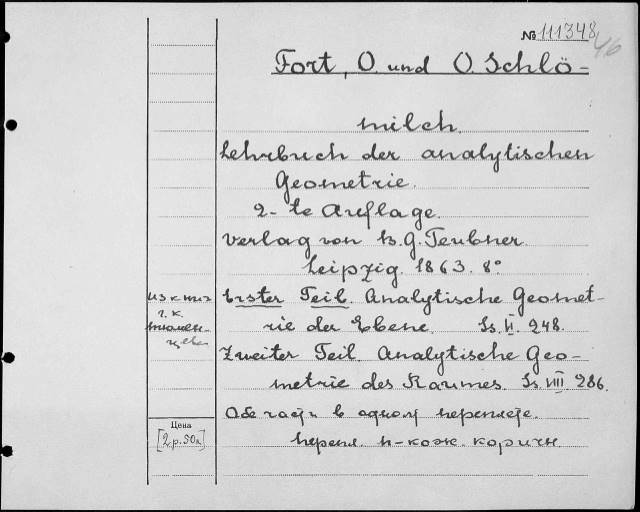 № 111348
46
Fort, O. und O. Schlö-
milch.
Lehrbuch der analytischen
Geometrie.
2-te Auflage.
Verlag von B. G. Teubner.
Leipzig. 1863. 8°
Из книг
г. К.
Erster Teil. Analytische Geomet-
rie der Ebene. Ss. VI. 248.
Zweiter Teil. Analytische Geo-
metrie des Raumes. Ss. VIII 286.
Обе части в одном переплете.
Цена
[2 р. 50 к]
Перепл. п-кож. коричн.